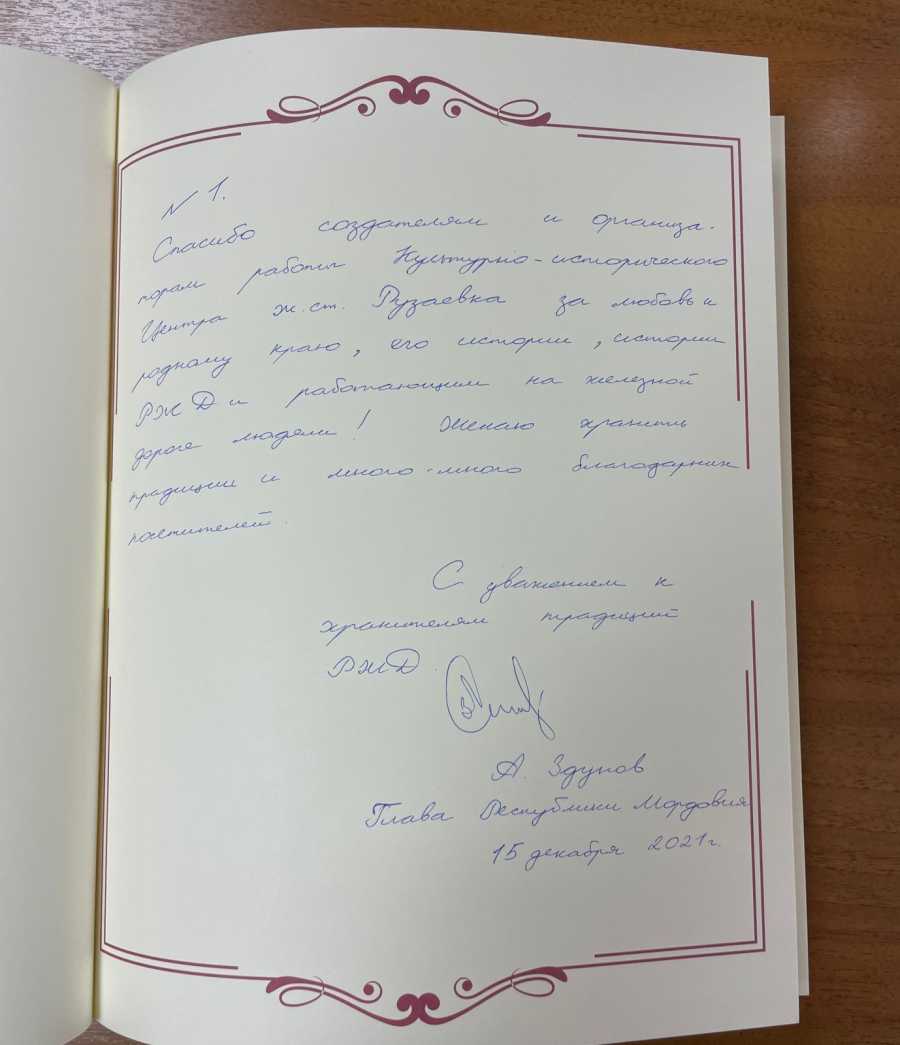 N 1.
Спасибо создателям и организа-
торам работы Культурно-исторического
Центра ж.ст. Рузаевка за любовь к
родному краю, его истории, истории
РЖД и работающим на железной
дороге людям! Желаю хранить
традиции и много-много благодарных
посетителей.
С уважением к
хранителям традиций
РЖД.
А. Здунов
Глава Республики Мордовия
15 декабря 2021 г.